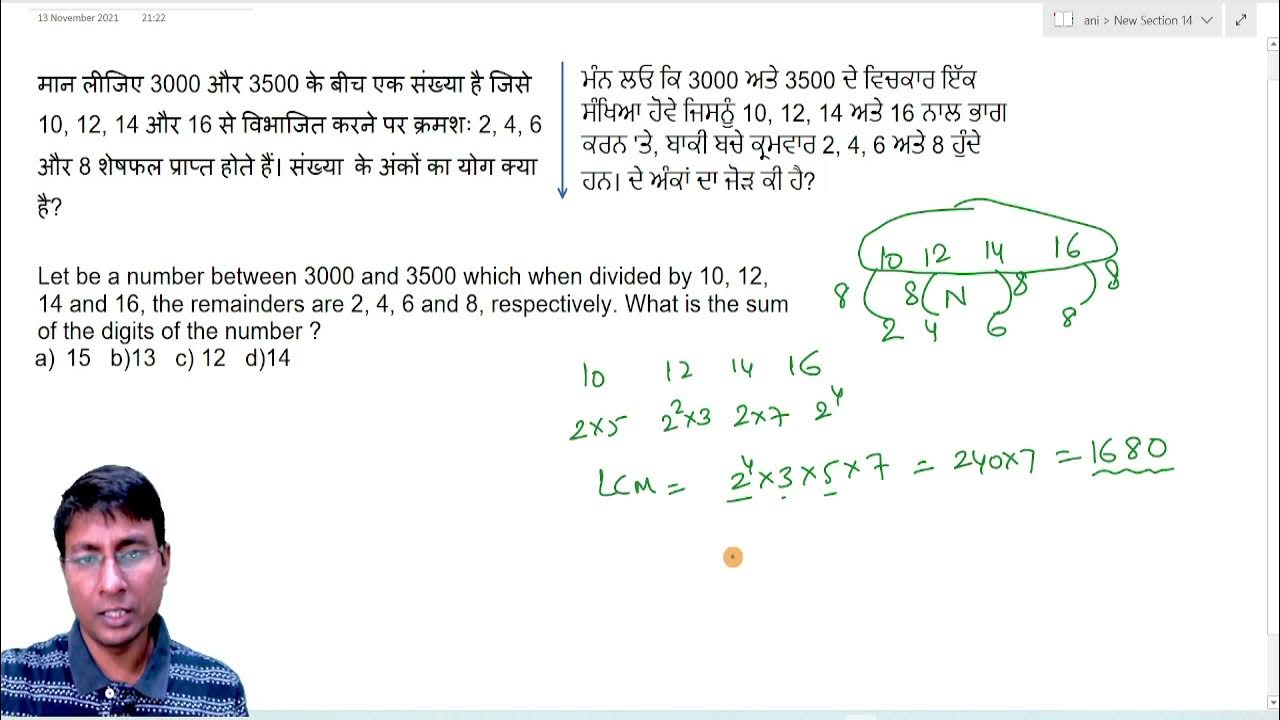 13 November 2021 21:22
ani > New Section 14
मान लीजिए 3000 और 3500 के बीच एक संख्या है जिसे
10, 12, 14 और 16 से विभाजित करने पर क्रमशः 2, 4, 6
और 8 शेषफल प्राप्त होते हैं। संख्या के अंकों का योग क्या
है?
ਮੰਨ ਲਓ ਕਿ 3000 ਅਤੇ 3500 ਦੇ ਵਿਚਕਾਰ ਇੱਕ
ਸੰਖਿਆ ਹੋਵੇ ਜਿਸਨੂੰ 10, 12, 14 ਅਤੇ 16 ਨਾਲ ਭਾਗ
ਕਰਨ 'ਤੇ, ਬਾਕੀ ਬਚੇ ਕ੍ਰਮਵਾਰ 2, 4, 6 ਅਤੇ 8 ਹੁੰਦੇ
ਹਨ। ਦੇ ਅੰਕਾਂ ਦਾ ਜੋੜ ਕੀ ਹੈ?
Let be a number between 3000 and 3500 which when divided by 10, 12,
14 and 16, the remainders are 2, 4, 6 and 8, respectively. What is the sum
of the digits of the number ?
a) 15 b)13 c) 12 d)14
10 12 14 16
8 8 N 8 8
2 4 6 8
10 12 14 16
2×5 2²×3 2×7 2⁴
LCM = 2⁴×3×5×7 = 240×7 = 1680